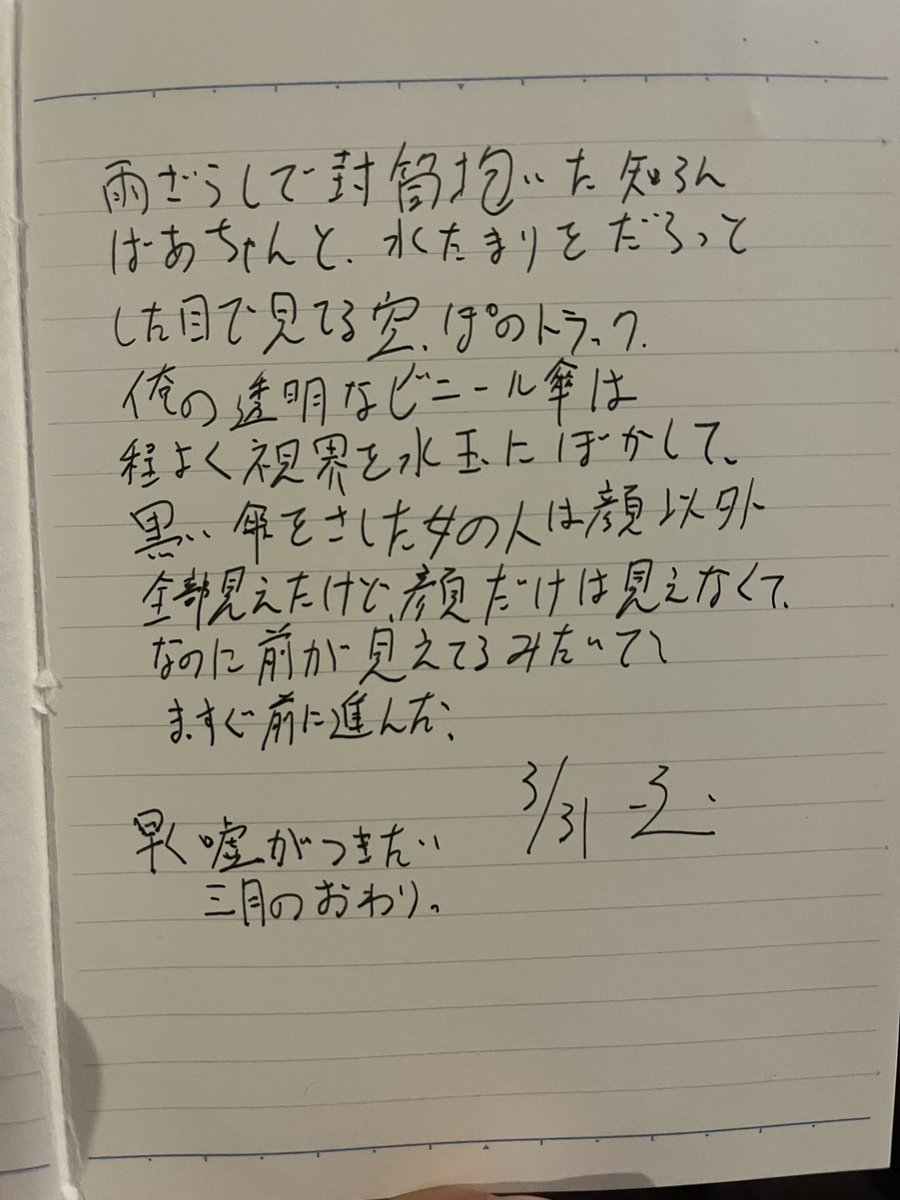 雨ざらしで封筒抱いた知らん
ばあちゃんと、水たまりをだらっと
した目で見てる空っぽのトラック。
俺の透明なビニール傘は
程よく視界を水玉にぼかして、
黒い傘をさした女の人は顔以外
全部見えたけど、顔だけは見えなくて、
なのに前が見えてるみたいで
まっすぐ前に進んだ。
3/31
早く嘘がつきたい
三月のおわり。